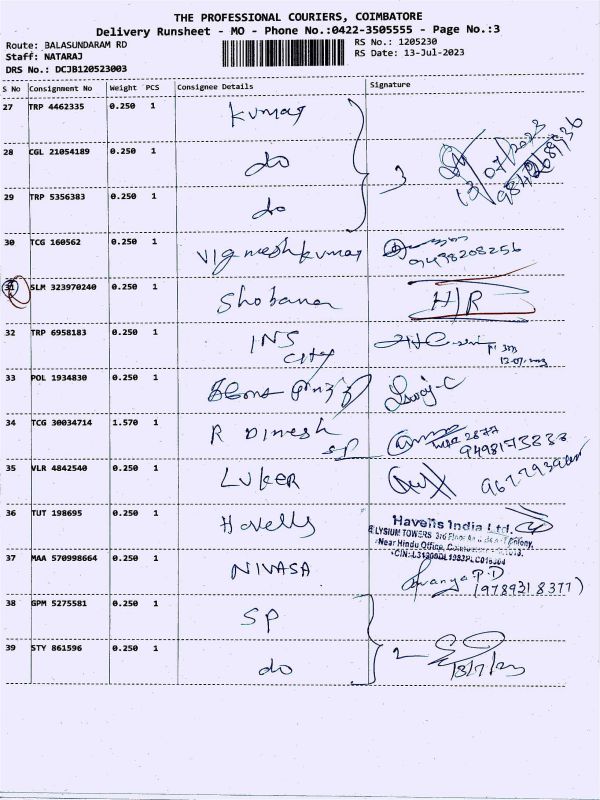 THE PROFESSIONAL COURIERS, COIMBATORE
Delivery Runsheet - MO - Phone No.:0422-3505555 - Page No.:3
Route: BALASUNDARAM RD
RS No.: 1205230
Staff: NATARAJ
RS Date: 13-Jul-2023
DRS No.: DCJB120523003
S No Consignment No Weight PCS Consignee Details Signature
27 TRP 4462335 0.250 1 Kumar
28 CGL 21054189 0.250 1 do
3
29 TRP 5356383 0.250 1 do
30 TCG 160562 0.250 1 Vigneshkumar 9498208256
31 SLM 323970240 0.250 1 Shobana H/R
32 TRP 6958183 0.250 1 INS
City
33 POL 1934830 0.250 1
34 TCG 30034714 1.570 1 R Dinesh
SP
9498173833
35 VLR 4842540 0.250 1 LUKER
36 TUT 198695 0.250 1 Havells
Havells India Ltd.
ELYSIUM TOWERS 3rd Floor
Near Hindu Office,
37 MAA 570998664 0.250 1 NIVASA
P.D
(9789318377)
38 GPM 5275581 0.250 1 SP
2
13/7/23
39 STY 861596 0.250 1 do